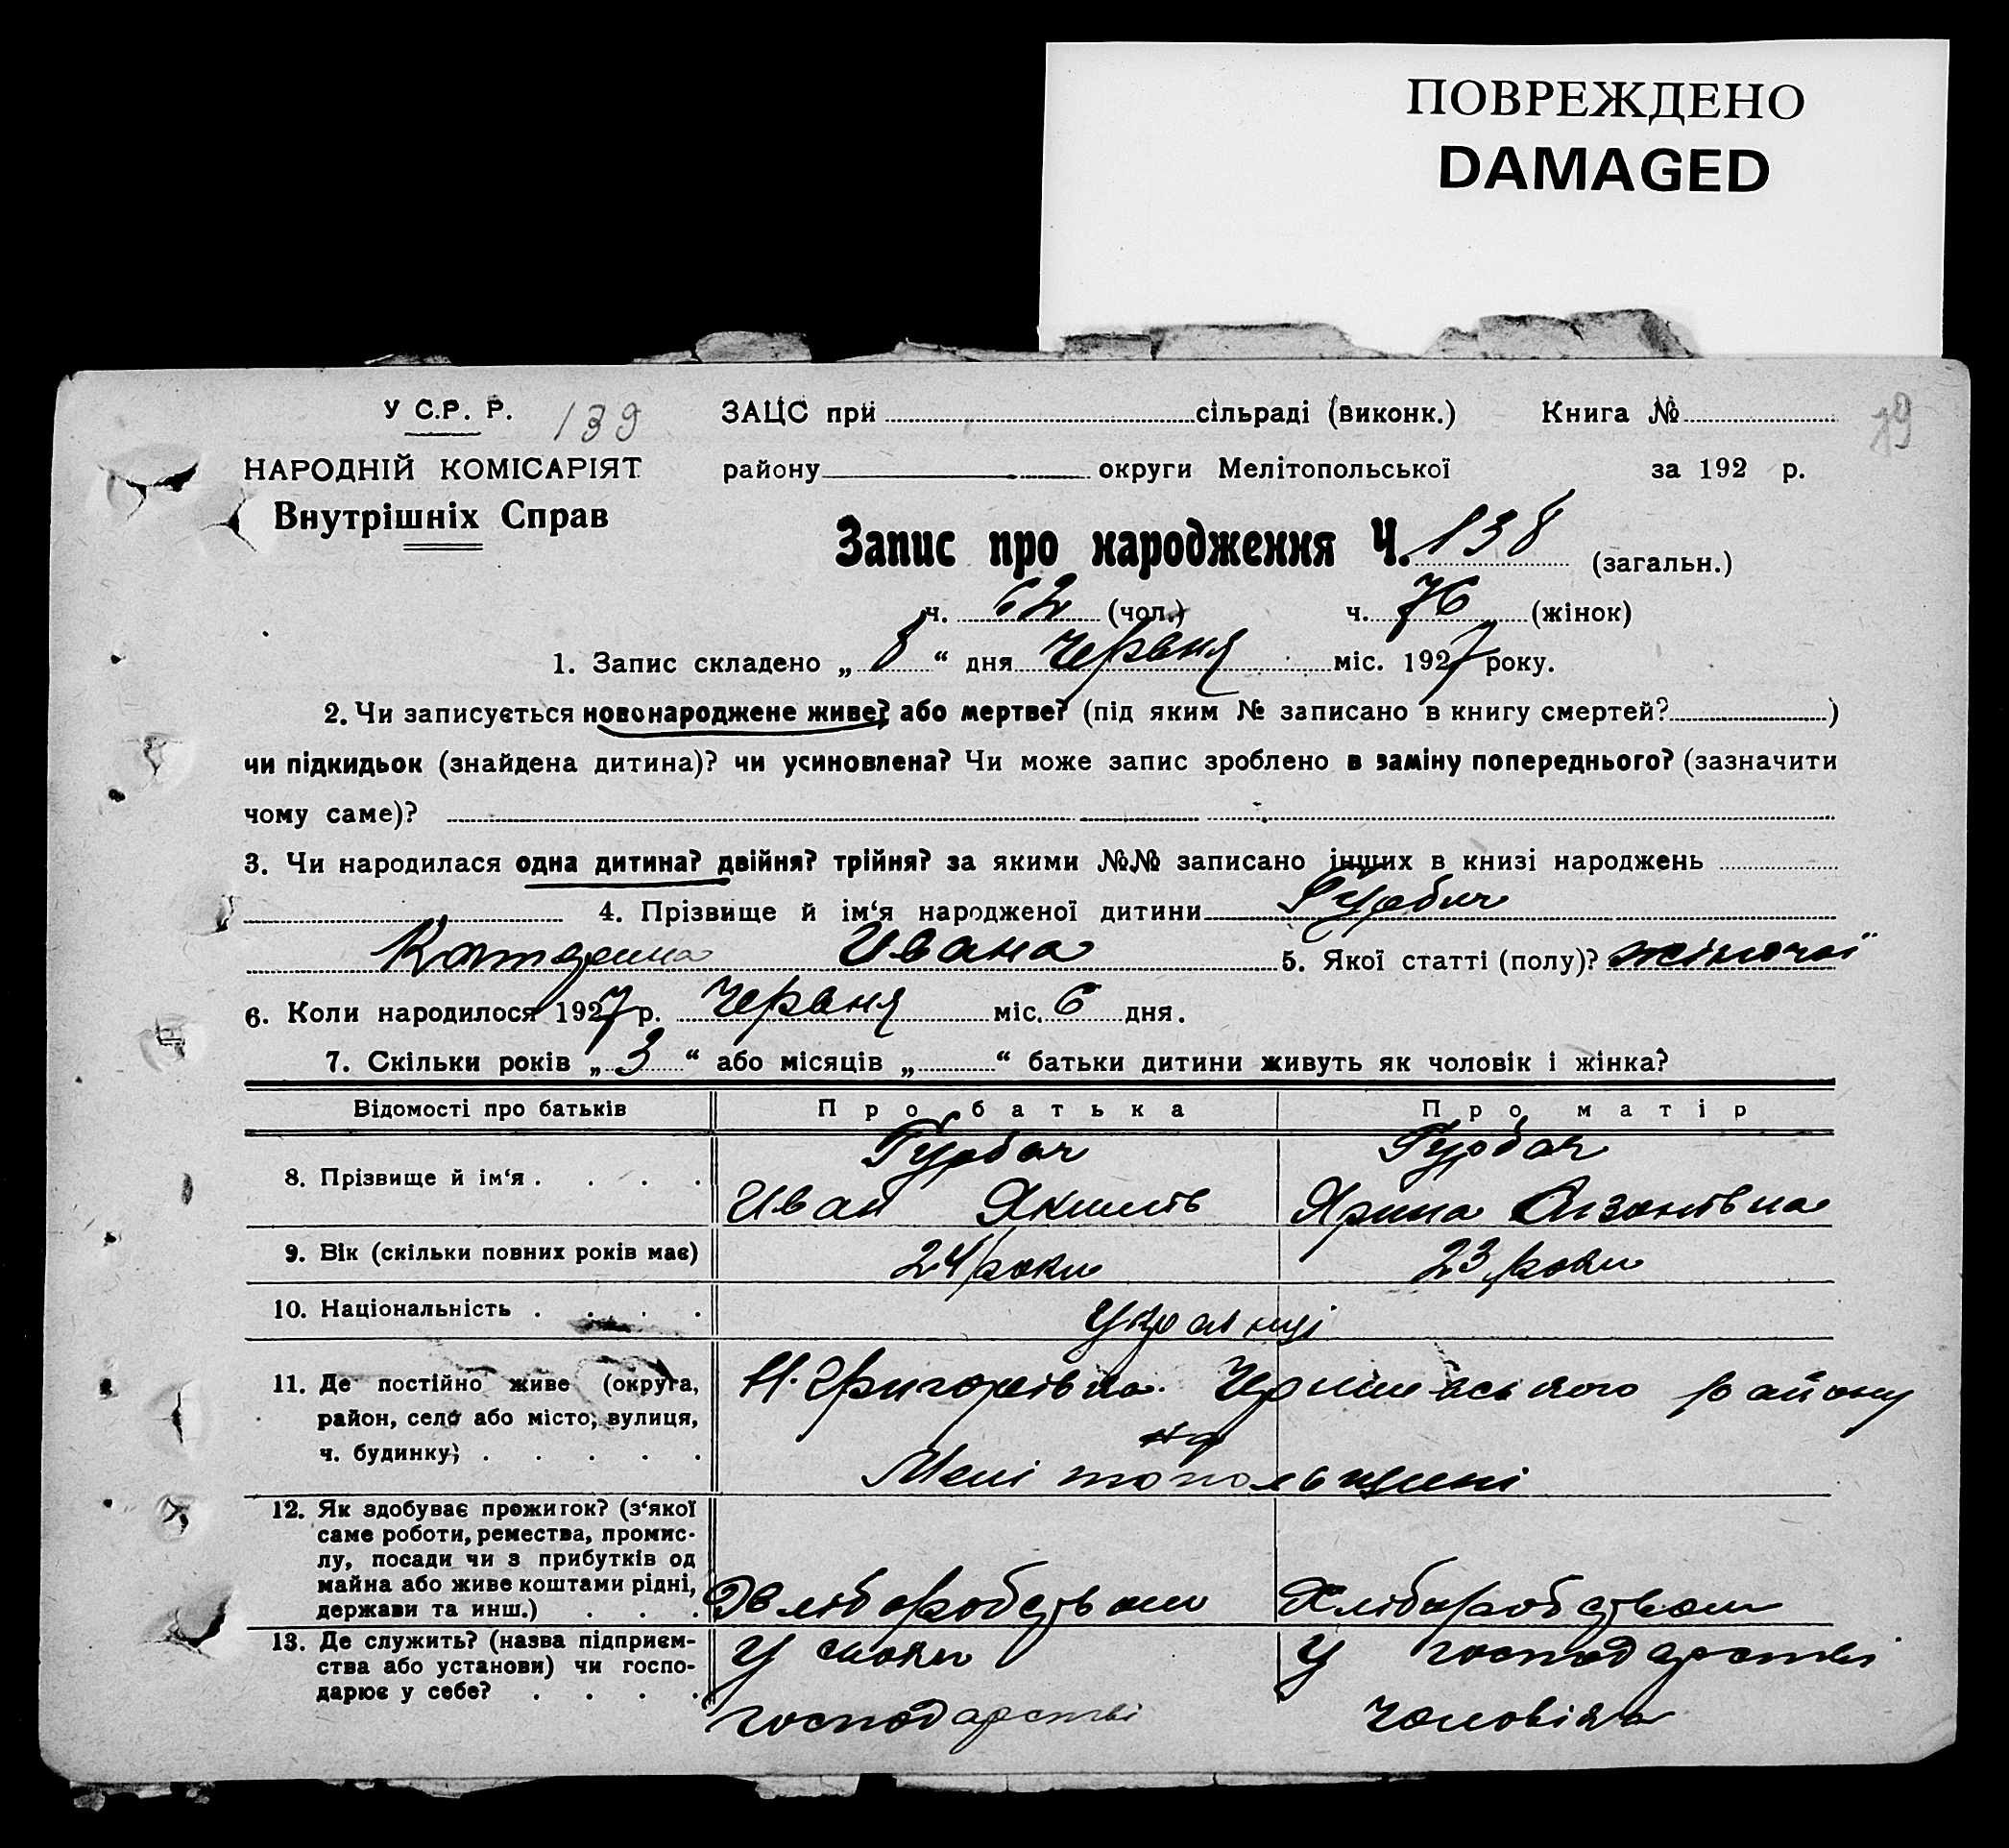 ПОВРЕЖДЕНО
DAMAGED
У С.Р. Р. 139 ЗАЦС при сільраді (виконк.) Книга № 19
НАРОДНІЙ КОМІСАРІЯТ району округи Мелітопольської за 192 р.
Внутрішніх Справ
Запис про народження Ч. 138 (загальн.)
ч. 62 (чол.) ч. 76 (жінок)
1. Запис складено „ 8 “ дня Червня міс. 1927 року.
2. Чи записується новонароджене живе? або мертве? (під яким № записано в книгу смертей? )
чи підкидьок (знайдена дитина)? чи усиновлена? Чи може запис зроблено в заміну попереднього? (зазначити
чому саме)?
3. Чи народилася одна дитина? двійня? трійня? за якими №№ записано інших в книзі народжень
4. Прізвище й ім‘я народженої дитини
Ивана 5. Якої статті (полу)? жіночої
6. Коли народилося 1927 р. Червня міс. 6 дня.
7. Скільки років „ 3 “ або місяців „ “ батьки дитини живуть як чоловік і жінка?
Відомості про батьків Про батька Про матір
Гурбич Гурбич
8. Прізвище й ім‘я . . . .
Иван Якимів Ярина
9. Вік (скільки повних років має) 24 роки 23 роки
10. Національність . . . . Українці
11. Де постійно живе (округа, Н. Григорівка. району
район, село або місто, вулиця,
ч. будинку; . . . . . Мелітопольщині
12. Як здобуває прожиток? (з‘якої
саме роботи, ремества, промис-
лу, посади чи з прибутків од
майна або живе коштами рідні,
держави та инш.) . . . Хліборобством Хліборобством
13. Де служить? (назва підприєм- У своїм У господарстві
ства або установи) чи госпо-
дарює у себе? . . . .
господарстві чоловіка